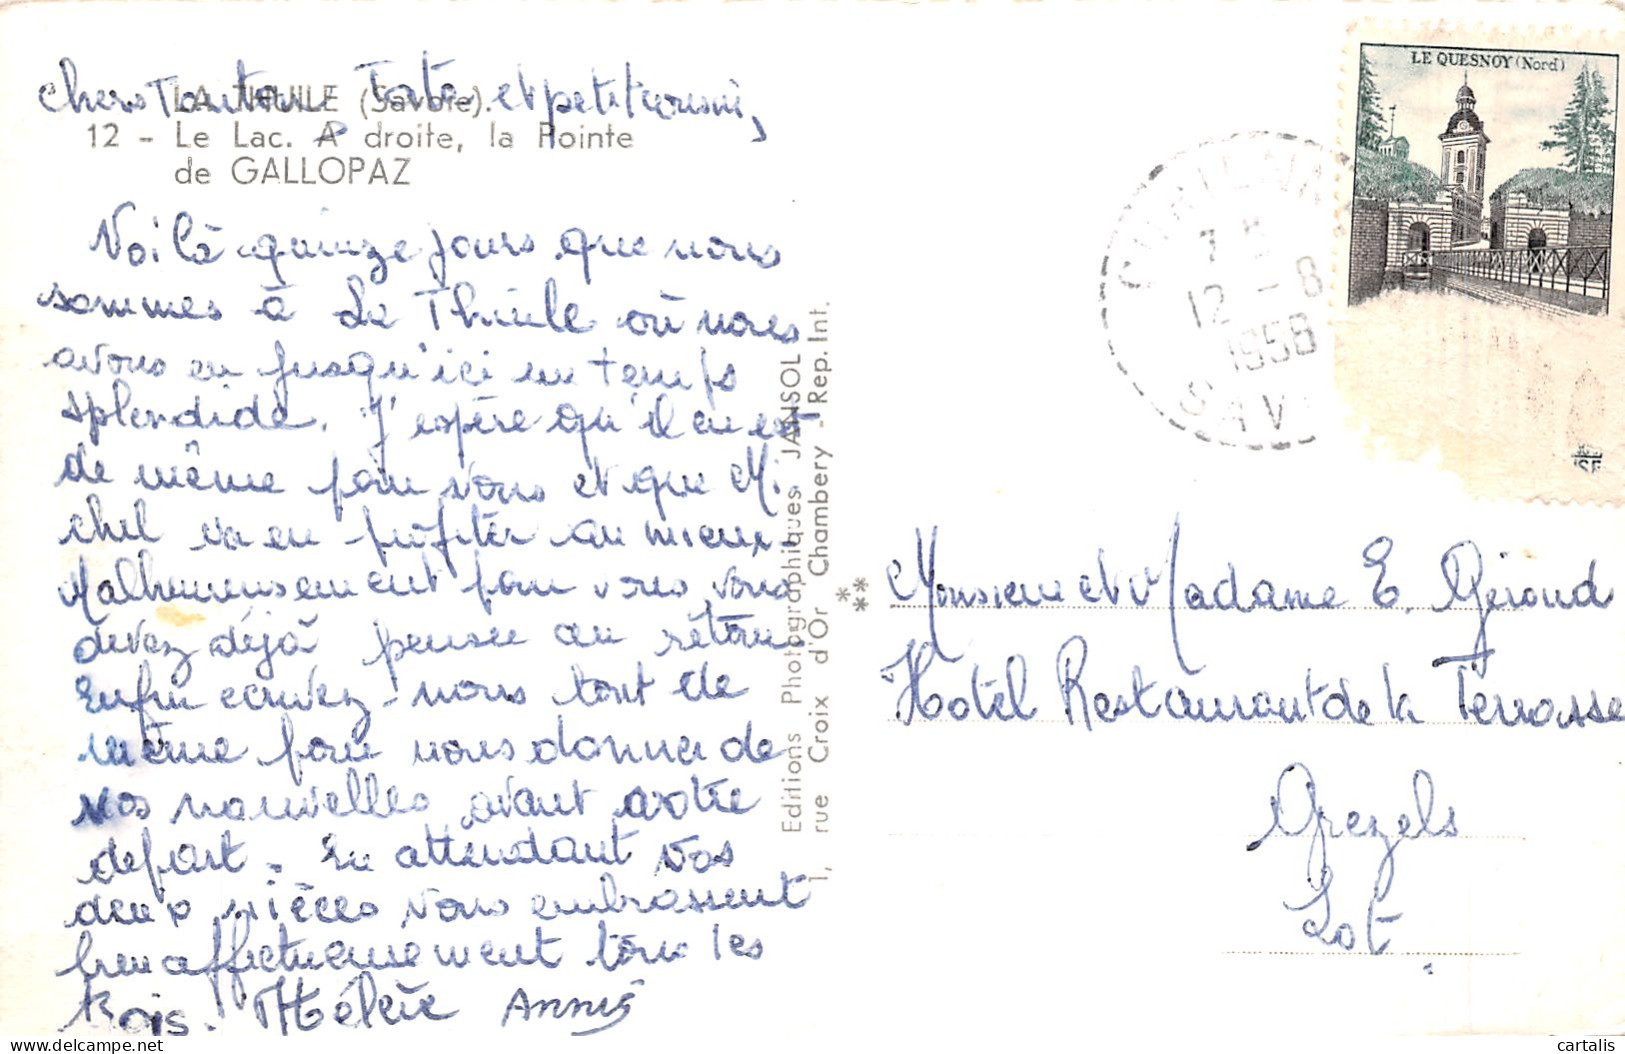 Chers Tonton Tata et petit cousin,
LA THUILE (Savoie).
12 - Le Lac. A droite, la Pointe
de GALLOPAZ
Voilà quinze jours que nous
sommes à La Thuile où nous
avons eu jusqu'ici un temps
splendide. J'espère qu'il en est
de même pour vous et que Mi
chel va en profiter au mieux -
Malheureusement pour vous vous
devez déjà penser au retour
Enfin écrivez-nous tout de
même pour nous donner de
vos nouvelles avant votre
départ - En attendant vos
deux nièces vous embrassent
bien affectueusement tous les
trois. Hélène Annie
Editions Photographiques JANSOL
1, rue Croix d'Or Chambery - Rep. Int.
LE QUESNOY (Nord)
12 - 8
1958
SAV
Monsieur et Madame E. Géraud
Hôtel Restaurant de la Terrasse
Grezels
Lot
cartalis